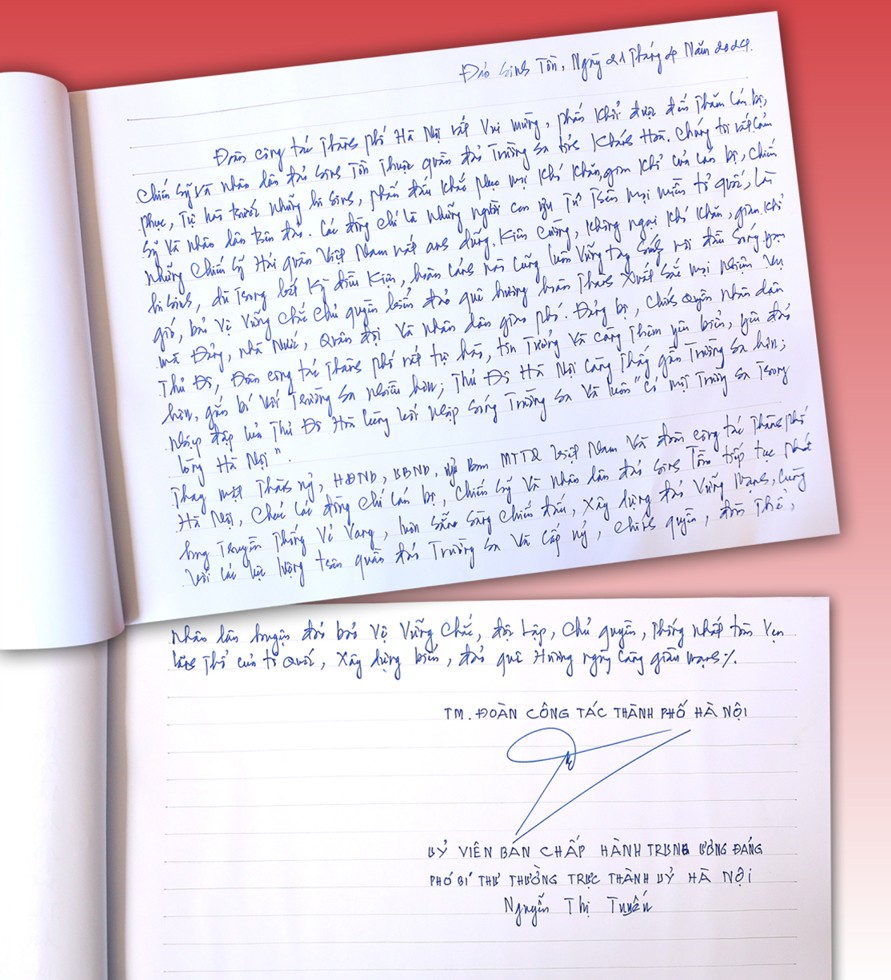 Đảo Sinh Tồn, Ngày 21 Tháng 4 Năm 2024.
Đoàn công tác Thành phố Hà Nội rất vui mừng, phấn khởi được đến thăm cán bộ,
chiến sỹ và nhân dân đảo Sinh Tồn thuộc quần đảo Trường Sa tỉnh Khánh Hòa. Chúng tôi rất cảm
phục, tự hào trước những hi sinh, phấn đấu khắc phục mọi khó khăn, gian khổ của cán bộ, chiến
sỹ và nhân dân trên đảo. Các đồng chí là những người con ưu tú trên mọi miền tổ quốc, là
những chiến sỹ Hải quân Việt Nam rất anh dũng, kiên cường, không ngại khó khăn, gian khổ
hi sinh, dù trong bất kỳ điều kiện, hoàn cảnh nào cũng luôn vững tay súng nơi đầu sóng ngọn
gió, bảo vệ vững chắc chủ quyền biển đảo quê hương hoàn thành xuất sắc mọi nhiệm vụ
mà Đảng, nhà nước, Quân đội và nhân dân giao phó. Đảng bộ, chính quyền nhân dân
Thủ Đô, Đoàn công tác thành phố rất tự hào, tin tưởng và càng thêm yêu biển, yêu đảo
hơn, gắn bó với Trường Sa nhiều hơn; Thủ Đô Hà Nội càng thấy gần Trường Sa hơn;
nhịp đập của Thủ Đô Hòa cùng với nhịp sóng Trường Sa và luôn "có một Trường Sa trong
lòng Hà Nội".
Thay mặt Thành ủy, HĐND, UBND, Ủy ban MTTQ Việt Nam và đoàn công tác Thành phố
Hà Nội, chúc các đồng chí cán bộ, chiến sỹ và nhân dân đảo Sinh Tồn tiếp tục phát
huy truyền thống vẻ vang, luôn sẵn sàng chiến đấu, xây dựng đảo vững mạnh, cùng
với các lực lượng trên quần đảo Trường Sa và cấp ủy, chính quyền, đoàn thể,
nhân dân huyện đảo bảo vệ vững chắc, độc lập, chủ quyền, thống nhất toàn vẹn
lãnh thổ của tổ quốc, xây dựng biển, đảo quê hương ngày càng giàu mạnh./.
TM. ĐOÀN CÔNG TÁC THÀNH PHỐ HÀ NỘI
ỦY VIÊN BAN CHẤP HÀNH TRUNG ƯƠNG ĐẢNG
PHÓ BÍ THƯ THƯỜNG TRỰC THÀNH ỦY HÀ NỘI
Nguyễn Thị Tuyến